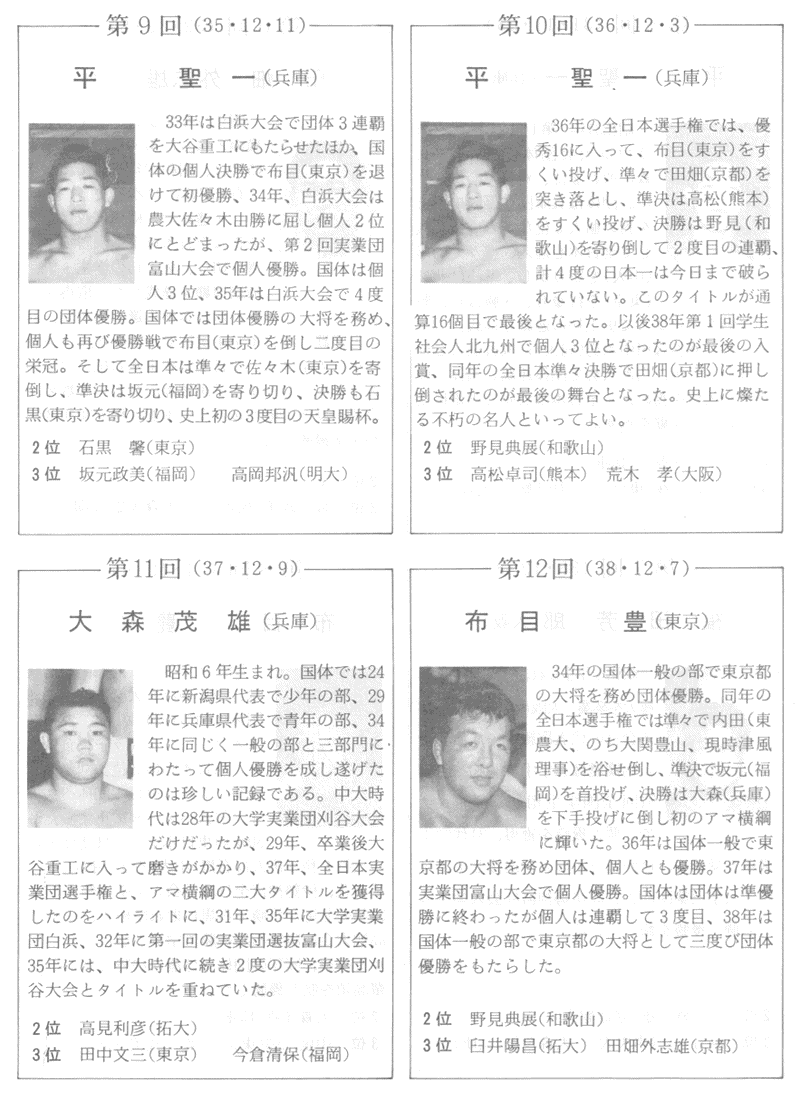 第9回(35・12・11)
平 聖一(兵庫)
33年は白浜大会で団体3連覇
を大谷重工にもたらせたほか、国
体の個人決勝で布目(東京)を退
けて初優勝、34年、白浜大会は
農大佐々木由勝に屈し個人2位
にとどまったが、第2回実業団
富山大会で個人優勝。国体は個
人3位、35年は白浜大会で4度
目の団体優勝。国体では団体優勝の大将を務め、
個人も再び優勝戦で布目(東京)を倒し二度目の
栄冠。そして全日本は準々で佐々木(東京)を寄
倒し、準決は坂元(福岡)を寄り切り、決勝も石
黒(東京)を寄り切り、史上初の3度目の天皇賜杯。
2位 石黒 馨(東京)
3位 坂元政美(福岡) 高岡邦汎(明大)
第10回(36・12・3)
平 聖一(兵庫)
36年の全日本選手権では、優
秀16に入って、布目(東京)をす
くい投げ、準々で田畑(京都)を
突き落とし、準決は高松(熊本)
をすくい投げ、決勝は野見(和
歌山)を寄り倒して2度目の連覇、
計4度の日本一は今日まで破ら
れていない。このタイトルが通
算16個目で最後となった。以後38年第1回学生
社会人北九州で個人3位となったのが最後の入
賞、同年の全日本準々決勝で田畑(京都)に押し
倒されたのが最後の舞台となった。史上に燦た
る不朽の名人といってよい。
2位 野見典展(和歌山)
3位 高松卓司(熊本) 荒木 孝(大阪)
第11回(37・12・9)
大森茂雄(兵庫)
昭和6年生まれ。国体では24
年に新潟県代表で少年の部、29
年に兵庫県代表で青年の部、34
年に同じく一般の部と三部門に
わたって個人優勝を成し遂げた
のは珍しい記録である。中大時
代は28年の大学実業団刈谷大会
だけだったが、29年、卒業後大
谷重工に入って磨きがかかり、37年、全日本実
業団選手権と、アマ横綱の二大タイトルを獲得
したのをハイライトに、31年、35年に大学実業
団白浜、32年に第一回の実業団選抜富山大会、
35年には、中大時代に続き2度の大学実業団刈
谷大会とタイトルを重ねていた。
2位 高見利彦(拓大)
3位 田中文三(東京) 今倉清保(福岡)
第12回(38・12・7)
布目 豊(東京)
34年の国体一般の部で東京都
の大将を務め団体優勝。同年の
全日本選手権では準々で内田(東
農大、のち大関豊山、現時津風
理事)を浴せ倒し、準決で坂元(福
岡)を首投げ、決勝は大森(兵庫)
を下手投げに倒し初のアマ横綱
に輝いた。36年は国体一般で東
京都の大将を務め団体、個人とも優勝。37年は
実業団富山大会で個人優勝。国体は団体は準優
勝に終わったが個人は連覇して3度目、38年は
国体一般の部で東京都の大将として三度び団体
優勝をもたらした。
2位 野見典展(和歌山)
3位 臼井陽昌(拓大) 田畑外志雄(京都)